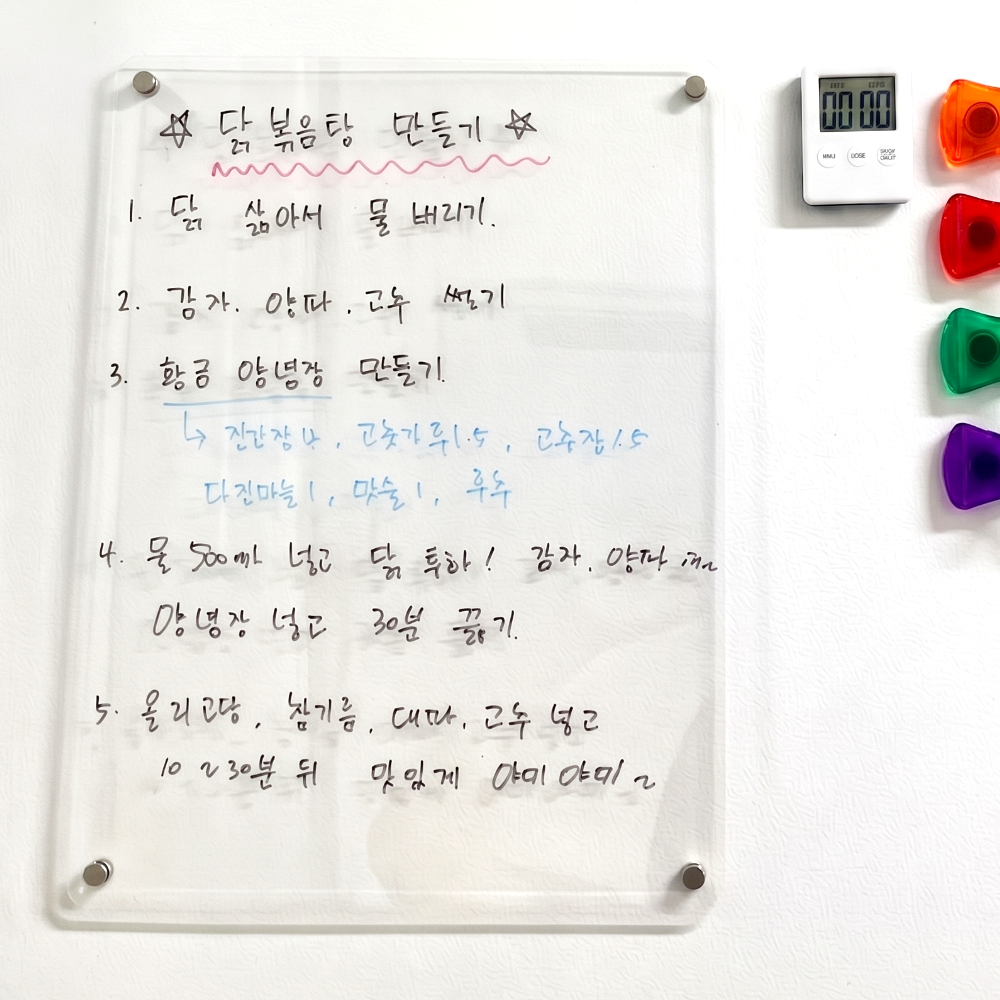 ☆ 닭볶음탕 만들기 ☆
1. 닭 삶아서 물 버리기.
2. 감자. 양파. 고추 썰기
3. 황금 양념장 만들기.
↳ 진간장 4, 고춧가루 1.5, 고추장 1.5
다진마늘 1, 맛술 1, 후추
4. 물 500ml 넣고 닭 투하! 감자. 양파
양념장 넣고 30분 끓기.
5. 올리고당, 참기름, 대파, 고추 넣고
10~30분 뒤 맛있게 야미야미~
00 00